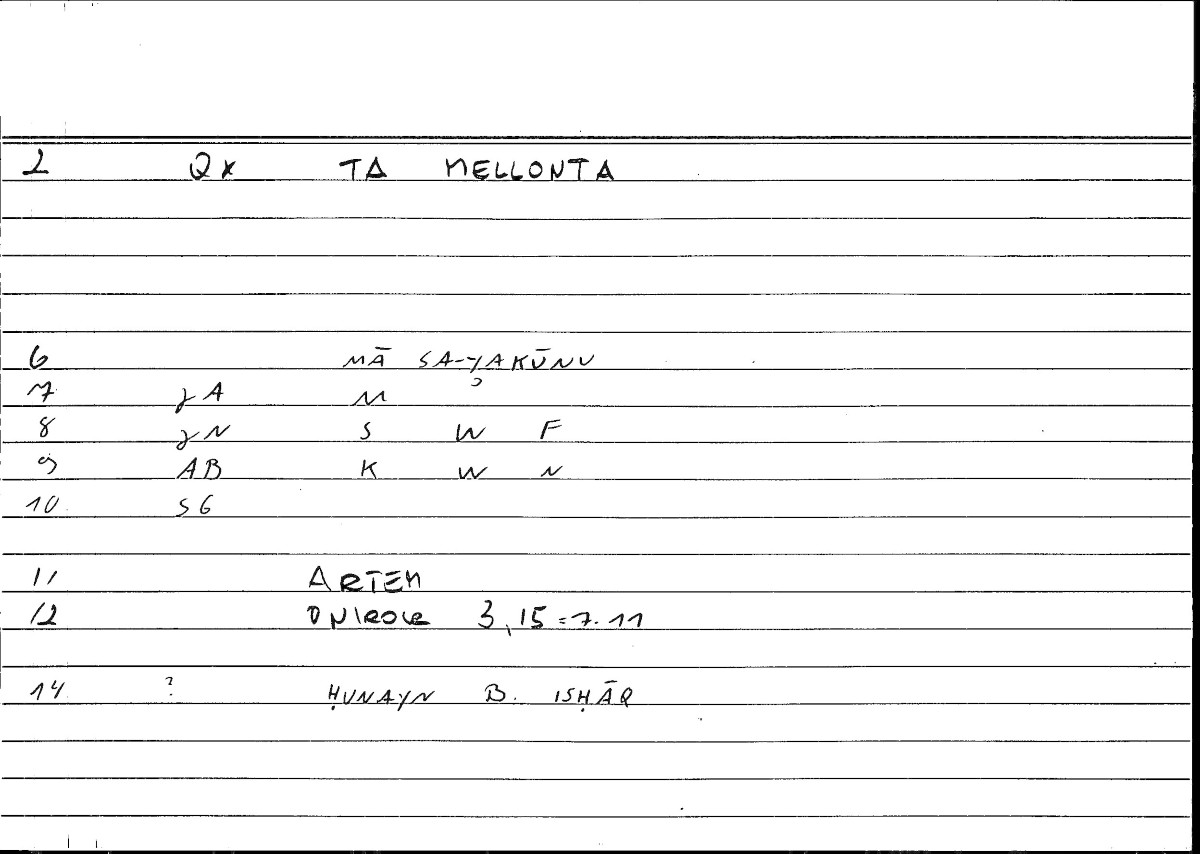 2 QX TA MELLONTA
6 MĀ SA-YAKŪNU
7 γA M
8 γN S W F
9 AB K W N
10 SG
11 ARTEM
12 ONIROCR 3,15=7.11
14 ? ḤUNAYN B. ISḤĀQ